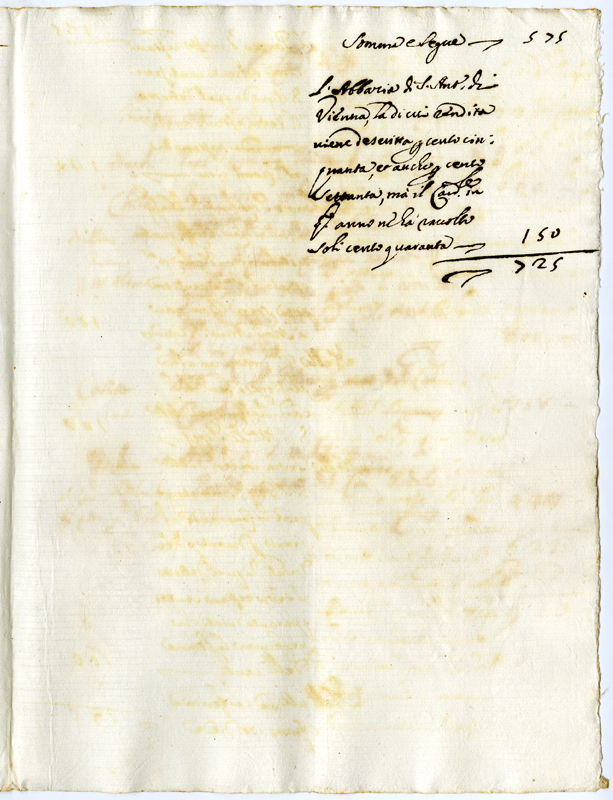 Somma e segue 575
L'Abbazia di S. Ant.º di
Vienna, la di cui rendita
viene descritta p cento cin:
quanta, et anche p cento
settanta, mà il Cav.re in
q.to anno ne hà raccolto
soli cento quaranta 150
725